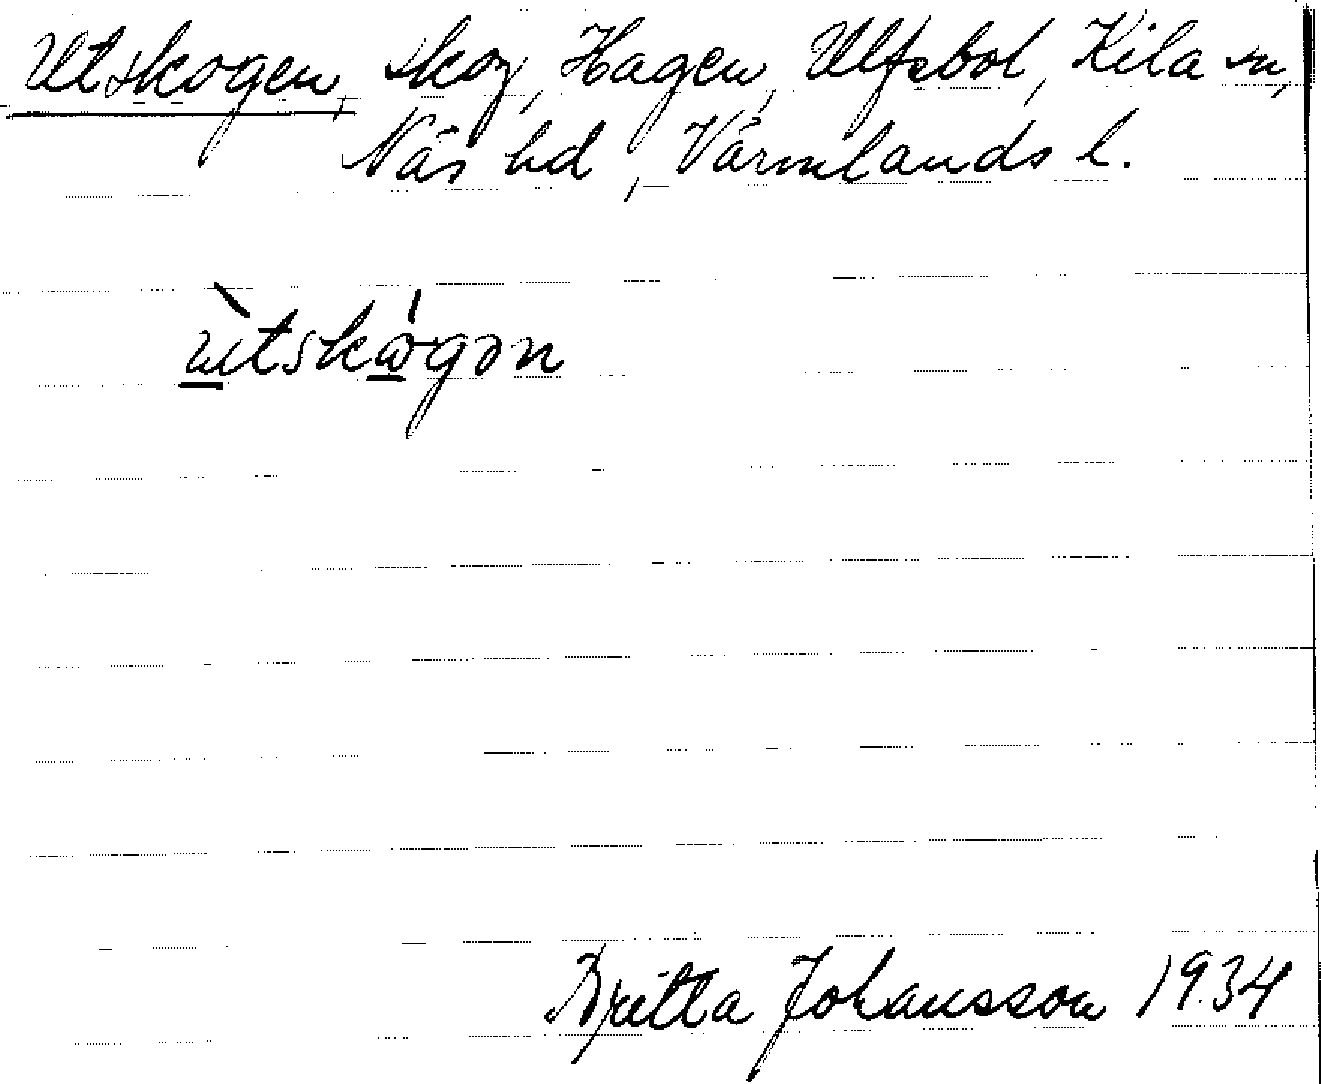 Utskogen, skog, Hagen, Ulfsbol, Kila sn,
Näs hd, Värmlands l.
ùtskógən
Britta Johansson 1934